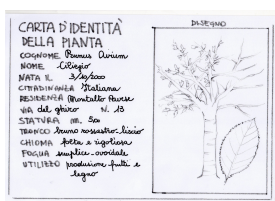 CARTA D'IDENTITÀ
DELLA PIANTA
COGNOME Prunus Avium
NOME Ciliegio
NATA IL 3/10/2000
CITTADINANZA Italiana
RESIDENZA Montalto Pavese
VIA del ghiro N. 13
STATURA m. 5,00
TRONCO bruno rossastro-liscio
CHIOMA folta e rigogliosa
FOGLIA semplice-ovoidale
UTILIZZO produzione frutti e
legno
DISEGNO